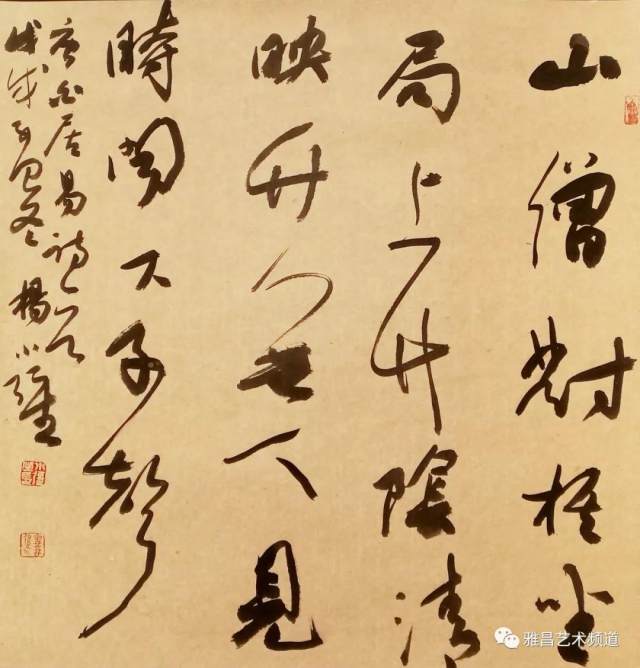 山僧對棋坐
局上竹陰清
映竹無人見
時聞下子聲
唐白居易詩一首
戊戌 冬 楊小
雅昌艺术频道